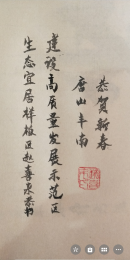 恭贺新春
唐山丰南
建设高质量发展示范区
生态宜居样板区赵喜泉恭书